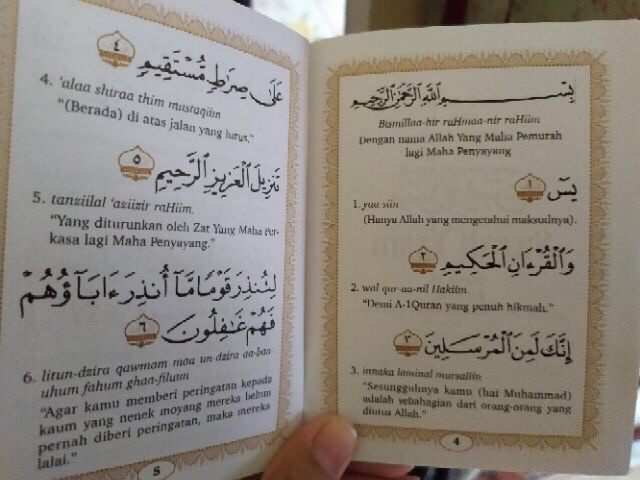 بِسْمِ اللَّهِ الرَّحْمَٰنِ الرَّحِيمِ
Bismillaa-hir raHmaa-nir raHiim
Dengan nama Allah Yang Maha Pemurah
lagi Maha Penyayang
يسٓ ١
1. yaa siin
(Hanya Allah yang mengetahui maksudnya).
وَالْقُرْءَانِ الْحَكِيمِ ٢
2. wal qur-au-nil Hakiim
"Demi A-1Quran yang penuh hikmah."
إِنَّكَ لَمِنَ الْمُرْسَلِينَ ٣
3. innaka laminal mursaliin
"Sesungguhnya kamu (hai Muhammad)
adalah sebahagian dari orang-orang yang
diutus Allah."
4
عَلَىٰ صِرَاطٍ مُّسْتَقِيمٍ ٤
4. 'alaa shiraa thim mustaqiin
"(Berada) di atas jalan yang lurus."
تَنزِيلَ الْعَزِيزِ الرَّحِيمِ ٥
5. tanziilal 'aziizir raHiim.
"Yang diturunkan oleh Zat Yang Maha Per-
kasa lagi Maha Penyayang."
لِتُنذِرَ قَوْمًا مَّآ أُنذِرَ ءَابَآؤُهُمْ
فَهُمْ غَافِلُونَ ٦
6. litun-dzira qawmam mau un-dzira aa-baa-
uhum fahum ghaa-filuun
"Agar kamu memberi peringatan kepada
kaum yang nenek moyang mereka belum
pernah diberi peringatan, maka mereka
lalai."
5